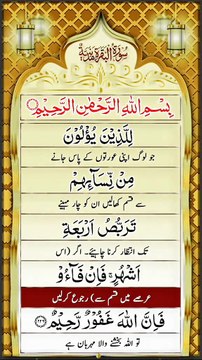 سُوْرَةُ الْبَقَرَةِ مَدَنِيَّةٌ
بِسْمِ اللّٰهِ الرَّحْمٰنِ الرَّحِيْمِ
لِلَّذِيْنَ يُؤْلُوْنَ
جو لوگ اپنی عورتوں کے پاس جانے
مِنْ نِّسَآىِٕهِمْ
سے قسم کھالیں ان کو چار مہینے
تَرَبُّصُ اَرْبَعَةِ
تک انتظار کرنا چاہیئے۔ اگر (اس
اَشْهُرٍۚ فَاِنْ فَآءُوْ
عرصے میں قسم سے) رجوع کرلیں
فَاِنَّ اللّٰهَ غَفُوْرٌ رَّحِيْمٌ ۲۲۶
تو اللہ بخشنے والا مہربان ہے